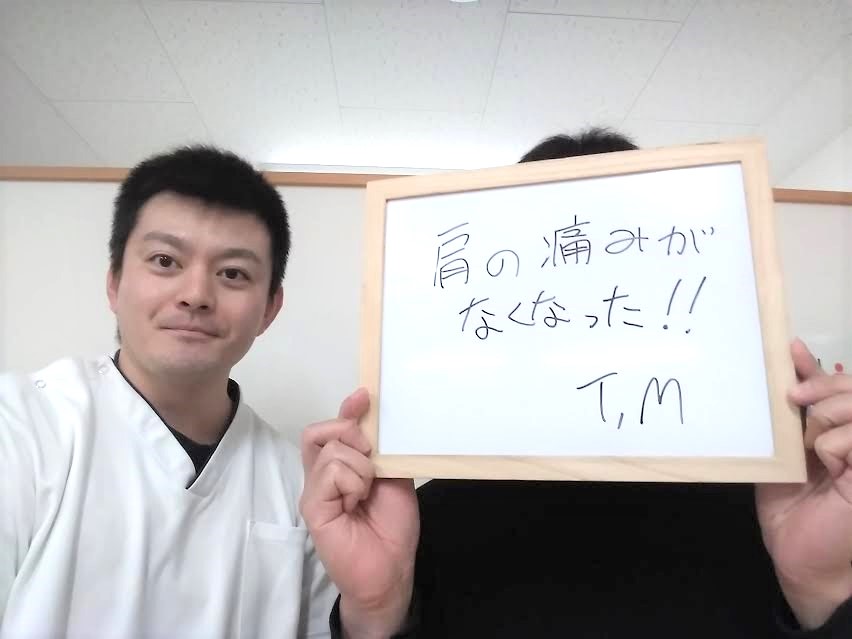 肩の痛みが
なくなった!!
T,M